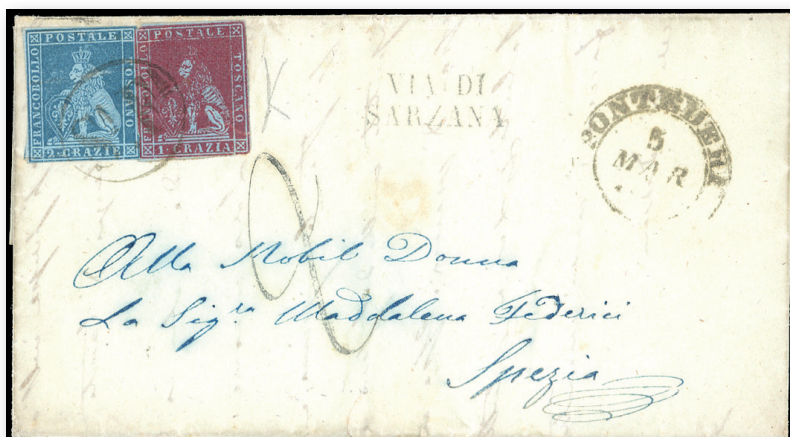 POSTALE
FRANCOBOLLO
TOSCANO
2·GRAZIE
POSTALE
FRANCOBOLLO
TOSCANO
1·GRAZIA
VIA DI
SARZANA
PONTEDERA
5
MAR
Alla Nobil Donna
La Sigra Maddalena Federici
Spezia